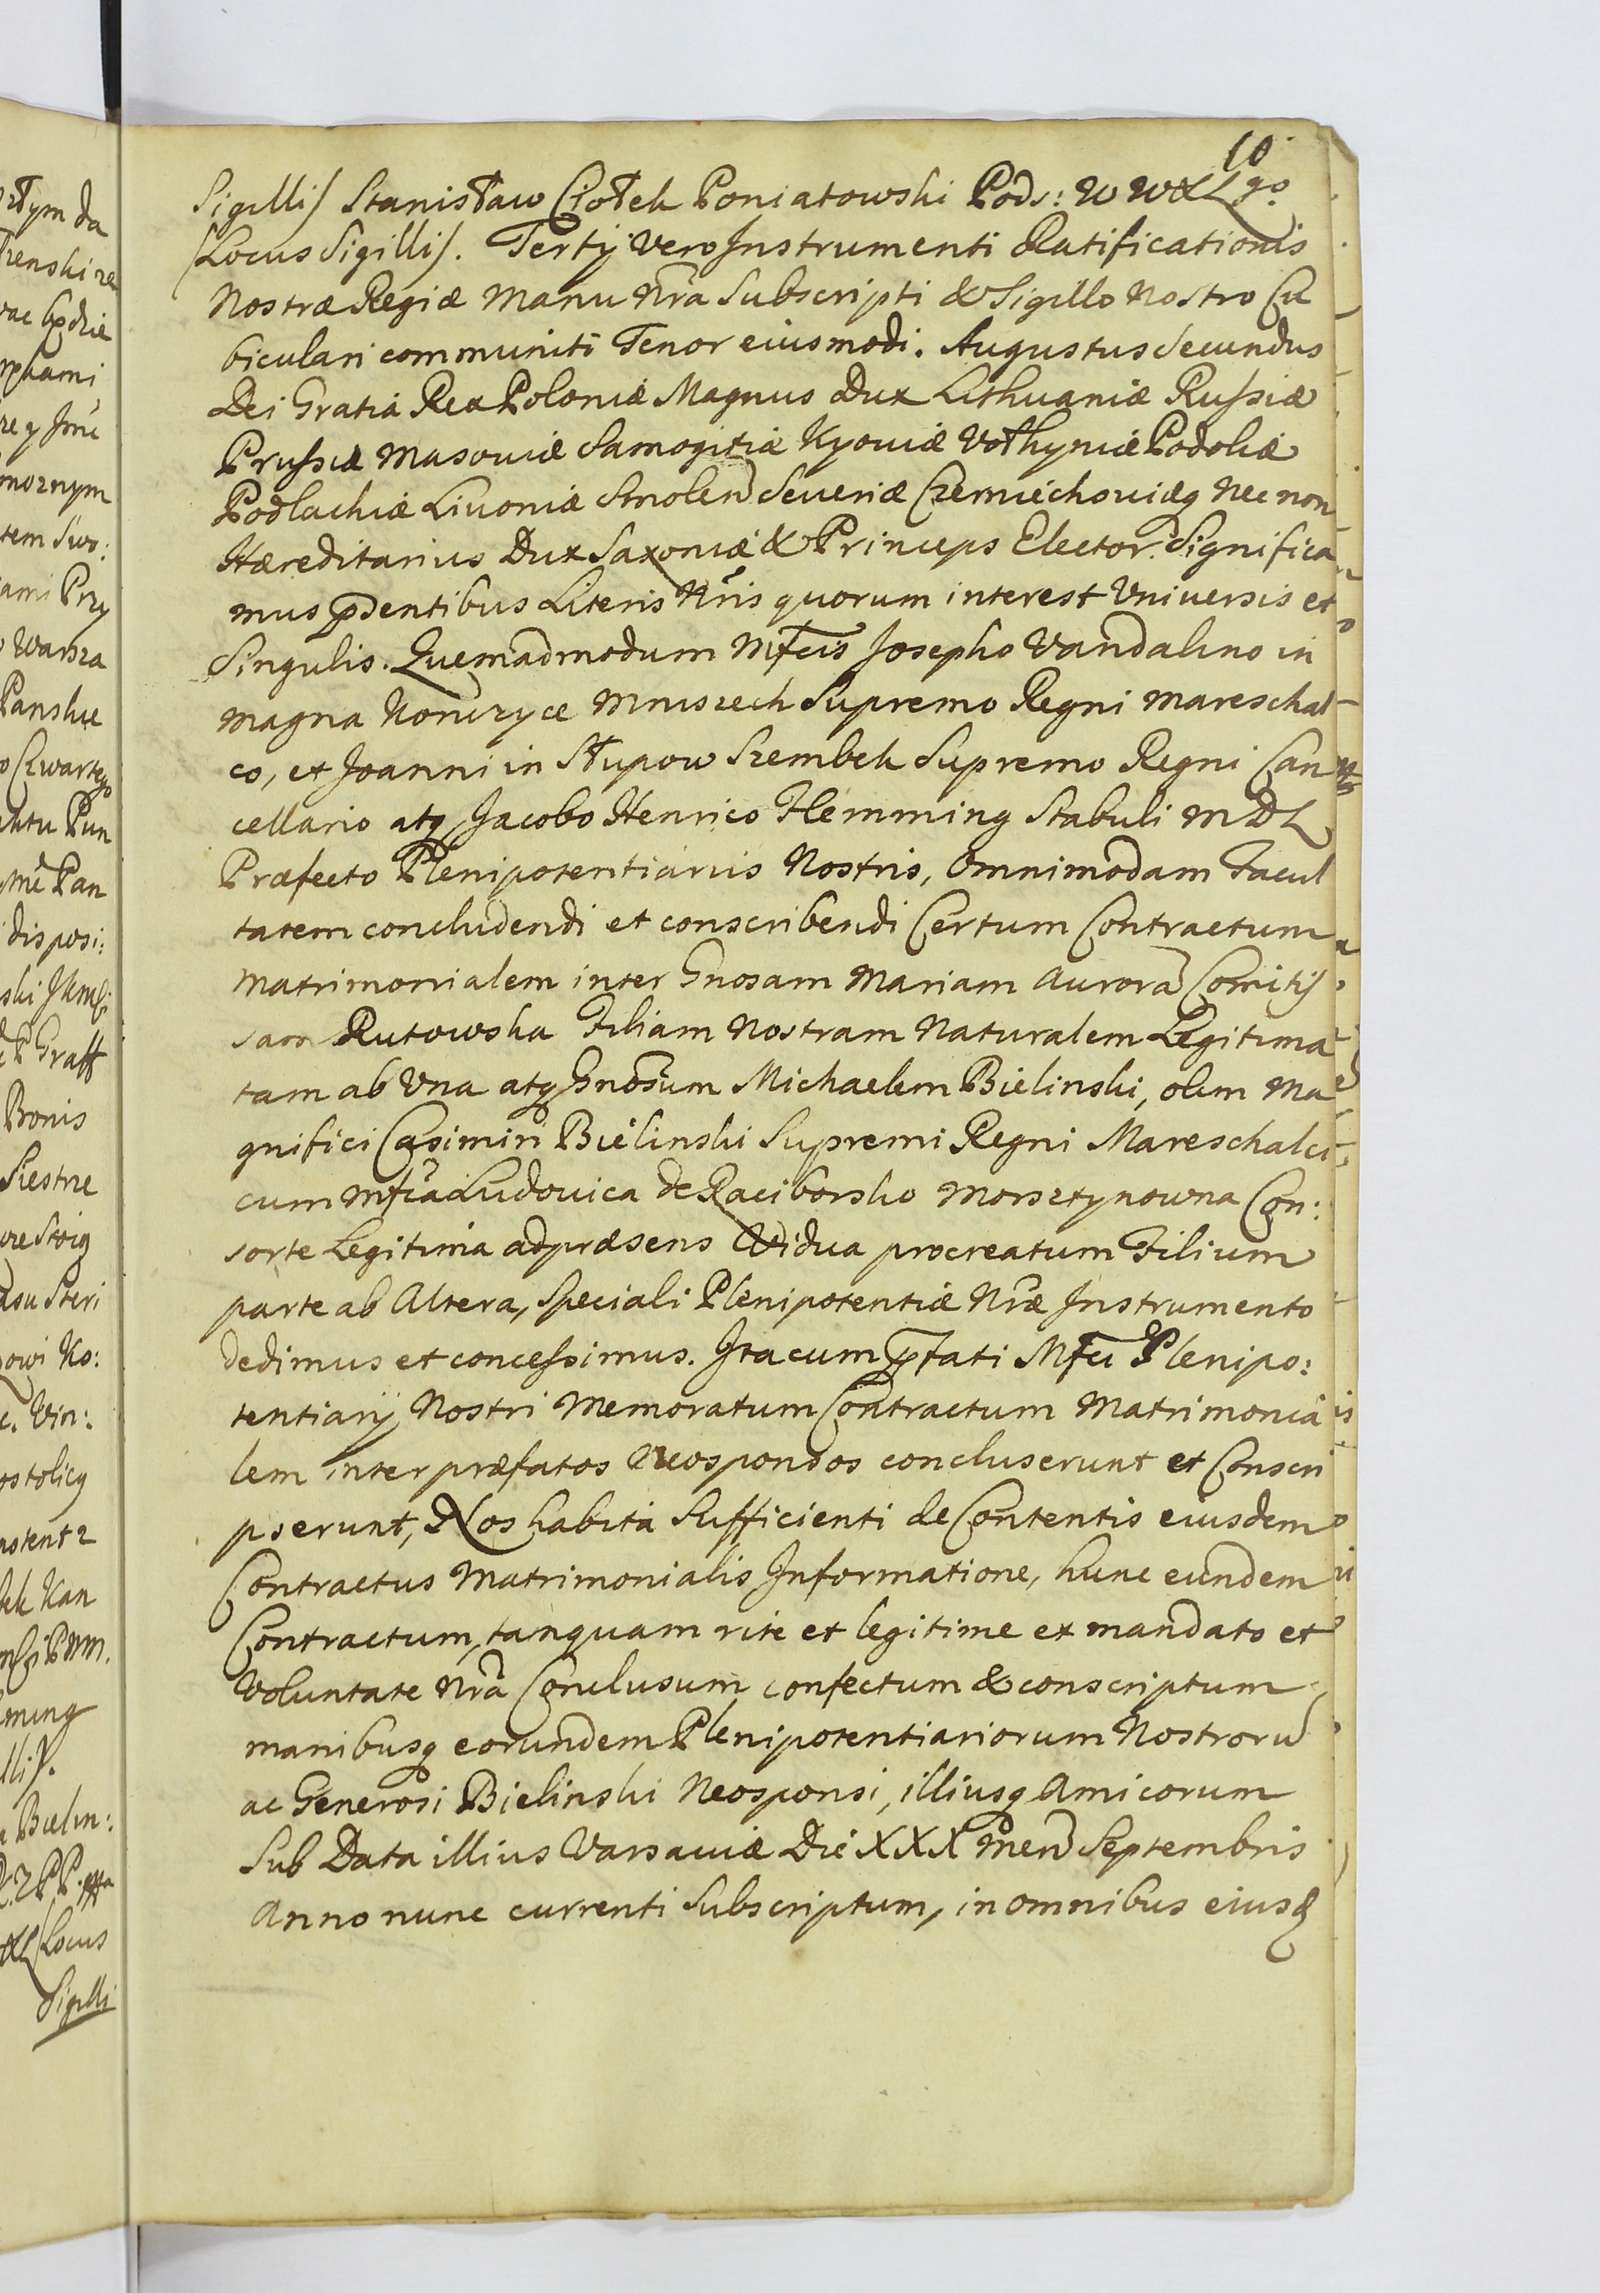 10
Sigilli/ Stanisław Ciołek Poniatowski Pods: W WXLgo
/Locus Sigilli/. Tertij vero Instrumenti Ratificationis
Nostræ Regiæ Manu Nrã Subscripti & Sigillo Nostro Cu
biculari communiti Tenor eiusmodi. Augustus Secundus
Dei Gratia Rex Poloniæ Magnus Dux Lithuaniæ Russiæ
Prussiæ Masouiæ Samogitiæ Kyouiæ Vołhyniæ Podoliæ
Podlachiæ Liuoniæ Smolen Seueriæ Czerniechouiæq Nec non
Hæreditarius Dux Saxoniæ & Princeps Elector. Significa
mus pdentibus Literis Nris quorum interest Vniuersis et
Singulis. Quemadmodum Mfcis Josepho Vandalino in
magna Konczyce Mniszech Supremo Regni Mareschal
co, et Joanni in Słupow Szembek Supremo Regni Can
cellario atq Jacobo Henrico Flemming Stabuli MDL
Præfecto Plenipotentiariis Nostris, Omnimodam Facul
tatem concludendi et conscribendi Certum Contractum
Matrimonialem inter Gnosam Mariam Aurorã Comitis
sam Rutowska Filiam Nostram Naturalem Legitima
tam ab Vna atq Gnosum Michaelem Bielinski, olim Ma
gnifici Casimiri Bielinski Supremi Regni Mareschalci
cum Mfca Ludouica de Raciborsko Morsztynowna Con:
sorte Legitima adpræsens Vidua procreatum Filium
parte ab Altera, Speciali Plenipotentiæ Nræ Instrumento
dedimus et concessimus. Ita cum pfati Mfci Plenipo:
tentiarij Nostri Memoratum Contractum Matrimonia
lem inter præfatos Neosponsos concluserunt et Conscri
pserunt, Nos habita Sufficienti de Contentis eiusdem
Contractus Matrimonialis Informatione, hunc eundem
Contractum, tanquam rite et legitime ex mandato et
Voluntate Nrã Conclusum confectum & conscriptum
manibusq eorundem Plenipotentiariorum Nostrorũ
ac Generosi Bielinski Neosponsi, illiusq Amicorum
Sub Data illius Varsauiæ Die XXX Men Septembris
Anno nunc currenti Subscriptum, in omnibus eiusq